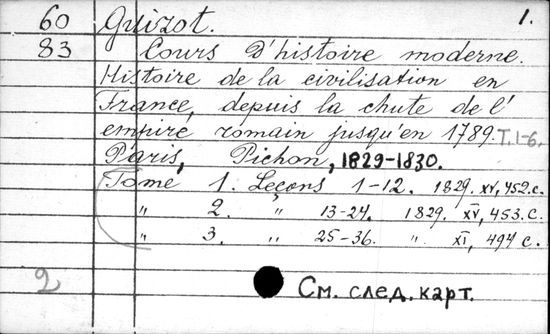 60 Guizot. 1.
83 Cours d'histoire moderne.
Histoire de la civilisation en
France, depuis la chute de l'
empire romain jusqu'en 1789. T. 1-6.
Paris, Pichon, 1829-1830.
Tome 1. Leçons 1-12. 1829. XV, 452.c.
" 2. " 13-24. 1829. XV, 453.c.
" 3. " 25-36. " XI, 494 c.
2 См. след. карт.